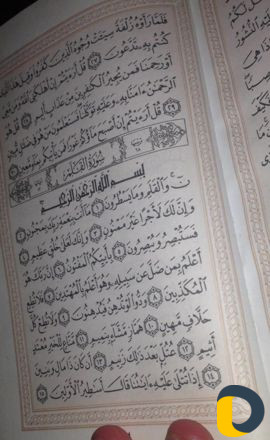 فَلَمَّا رَأَوْهُ زُلْفَةً سِيٓـَٔتْ وُجُوهُ ٱلَّذِينَ كَفَرُوا۟ وَقِيلَ هَٰذَا ٱلَّذِى
كُنتُم بِهِۦ تَدَّعُونَ ٢٧ قُلْ أَرَءَيْتُمْ إِنْ أَهْلَكَنِىَ ٱللَّهُ وَمَن مَّعِىَ
أَوْ رَحِمَنَا فَمَن يُجِيرُ ٱلْكَٰفِرِينَ مِنْ عَذَابٍ أَلِيمٍ ٢٨ قُلْ هُوَ
ٱلرَّحْمَٰنُ ءَامَنَّا بِهِۦ وَعَلَيْهِ تَوَكَّلْنَا فَسَتَعْلَمُونَ مَنْ هُوَ فِى ضَلَٰلٍ مُّبِينٍ
٢٩ قُلْ أَرَءَيْتُمْ إِنْ أَصْبَحَ مَآؤُكُمْ غَوْرًا فَمَن يَأْتِيكُم بِمَآءٍ مَّعِينٍ ٣٠
سُورَةُ القَلَمِ
بِسْمِ ٱللَّهِ ٱلرَّحْمَٰنِ ٱلرَّحِيمِ
نٓ وَٱلْقَلَمِ وَمَا يَسْطُرُونَ ١ مَآ أَنتَ بِنِعْمَةِ رَبِّكَ بِمَجْنُونٍ ٢
وَإِنَّ لَكَ لَأَجْرًا غَيْرَ مَمْنُونٍ ٣ وَإِنَّكَ لَعَلَىٰ خُلُقٍ عَظِيمٍ ٤
فَسَتُبْصِرُ وَيُبْصِرُونَ ٥ بِأَييِّكُمُ ٱلْمَفْتُونُ ٦ إِنَّ رَبَّكَ هُوَ
أَعْلَمُ بِمَن ضَلَّ عَن سَبِيلِهِۦ وَهُوَ أَعْلَمُ بِٱلْمُهْتَدِينَ ٧ فَلَا تُطِعِ
ٱلْمُكَذِّبِينَ ٨ وَدُّوا۟ لَوْ تُدْهِنُ فَيُدْهِنُونَ ٩ وَلَا تُطِعْ كُلَّ
حَلَّافٍ مَّهِينٍ ١٠ هَمَّازٍ مَّشَّآءٍۭ بِنَمِيمٍ ١١ مَّنَّاعٍ لِّلْخَيْرِ مُعْتَدٍ
أَثِيمٍ ١٢ عُتُلٍّۭ بَعْدَ ذَٰلِكَ زَنِيمٍ ١٣ أَن كَانَ ذَا مَالٍ وَبَنِينَ
١٤ إِذَا تُتْلَىٰ عَلَيْهِ ءَايَٰتُنَا قَالَ أَسَٰطِيرُ ٱلْأَوَّلِينَ ١٥